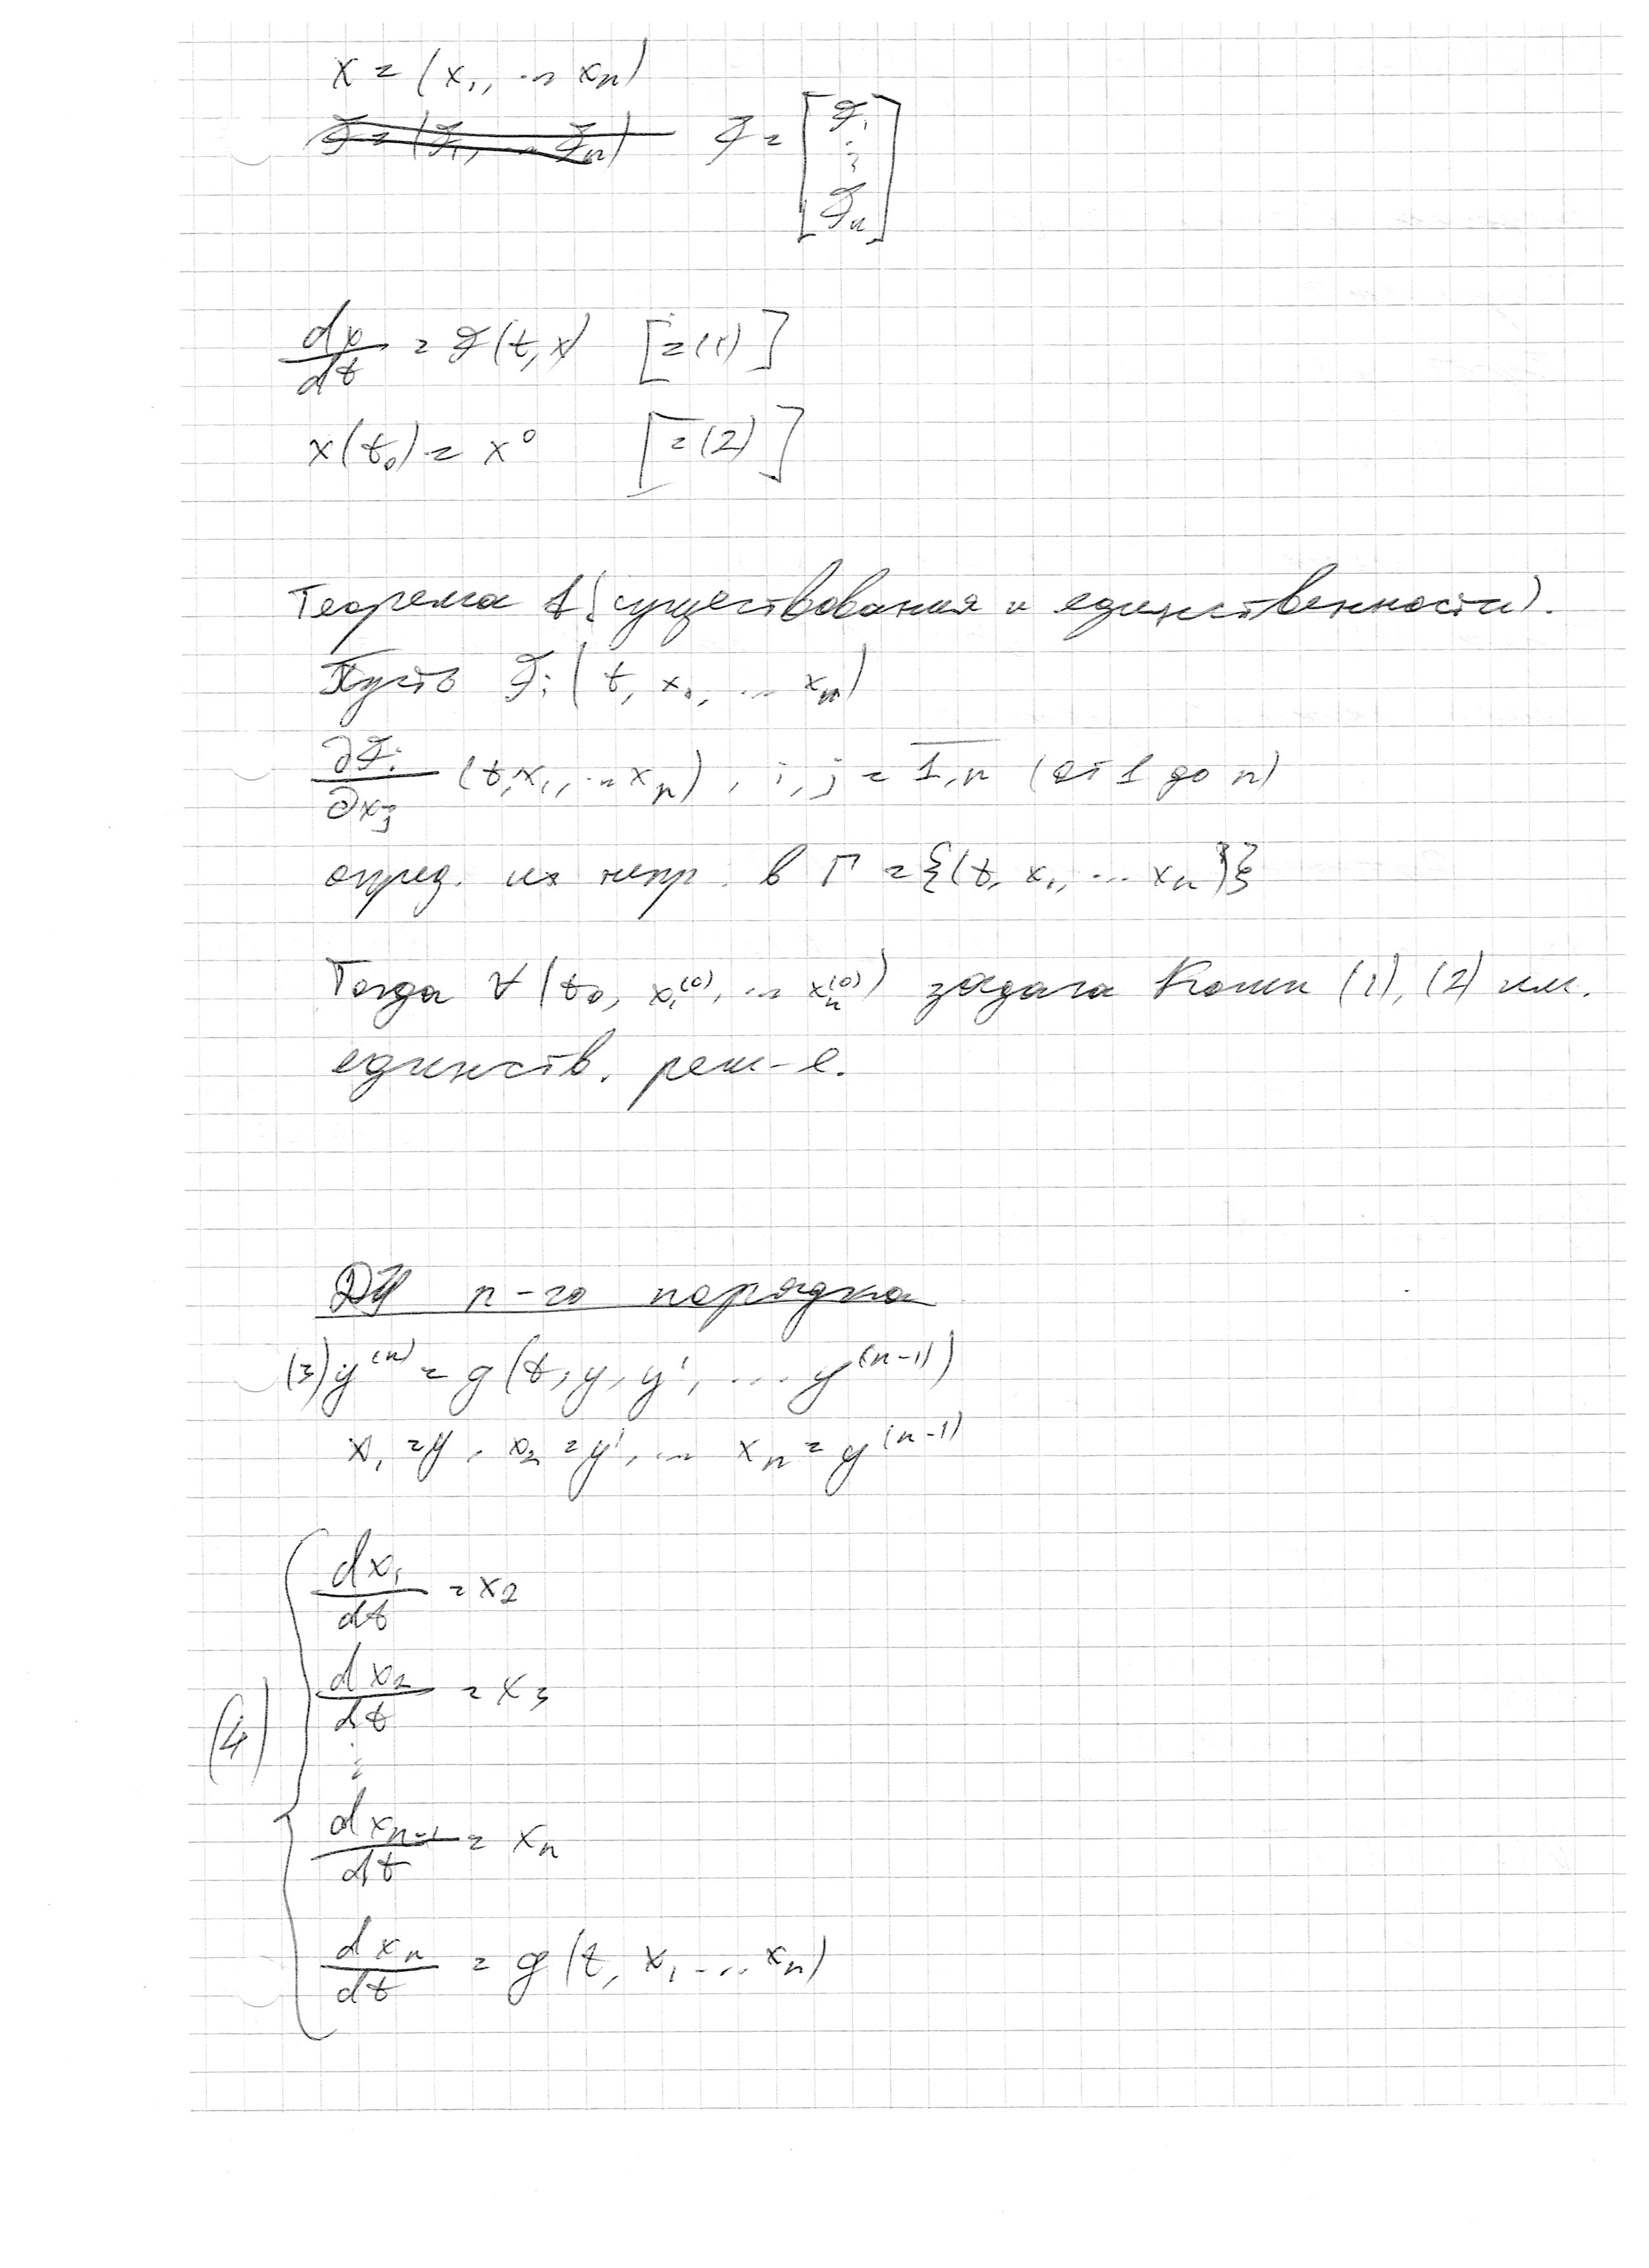 x = (x₁, ... xₙ)
F = (F₁, ... Fₙ) F = [F₁ ⋮ Fₙ]
dx/dt = F(t, x) [=(1)]
x(t₀) = x⁰ [=(2)]
Теорема 1 (существования и единственности).
Пусть Fᵢ(t, x₁, ... xₙ)
∂Fᵢ/∂xⱼ (t, x₁, ... xₙ), i, j = 1,n (от 1 до n)
опред. их непр. в Г = {(t, x₁, ... xₙ)}
Тогда ∀ (t₀, x₁⁽⁰⁾, ... xₙ⁽⁰⁾) задача Коши (1), (2) им.
единств. реш-е.
ДУ n-го порядка
(3) y⁽ⁿ⁾ = g(t, y, y', ... y⁽ⁿ⁻¹⁾)
x₁ = y, x₂ = y', ... xₙ = y⁽ⁿ⁻¹⁾
dx₁/dt = x₂
dx₂/dt = x₃
(4) ⋮
dxₙ₋₁/dt = xₙ
dxₙ/dt = g(t, x₁ ... xₙ)